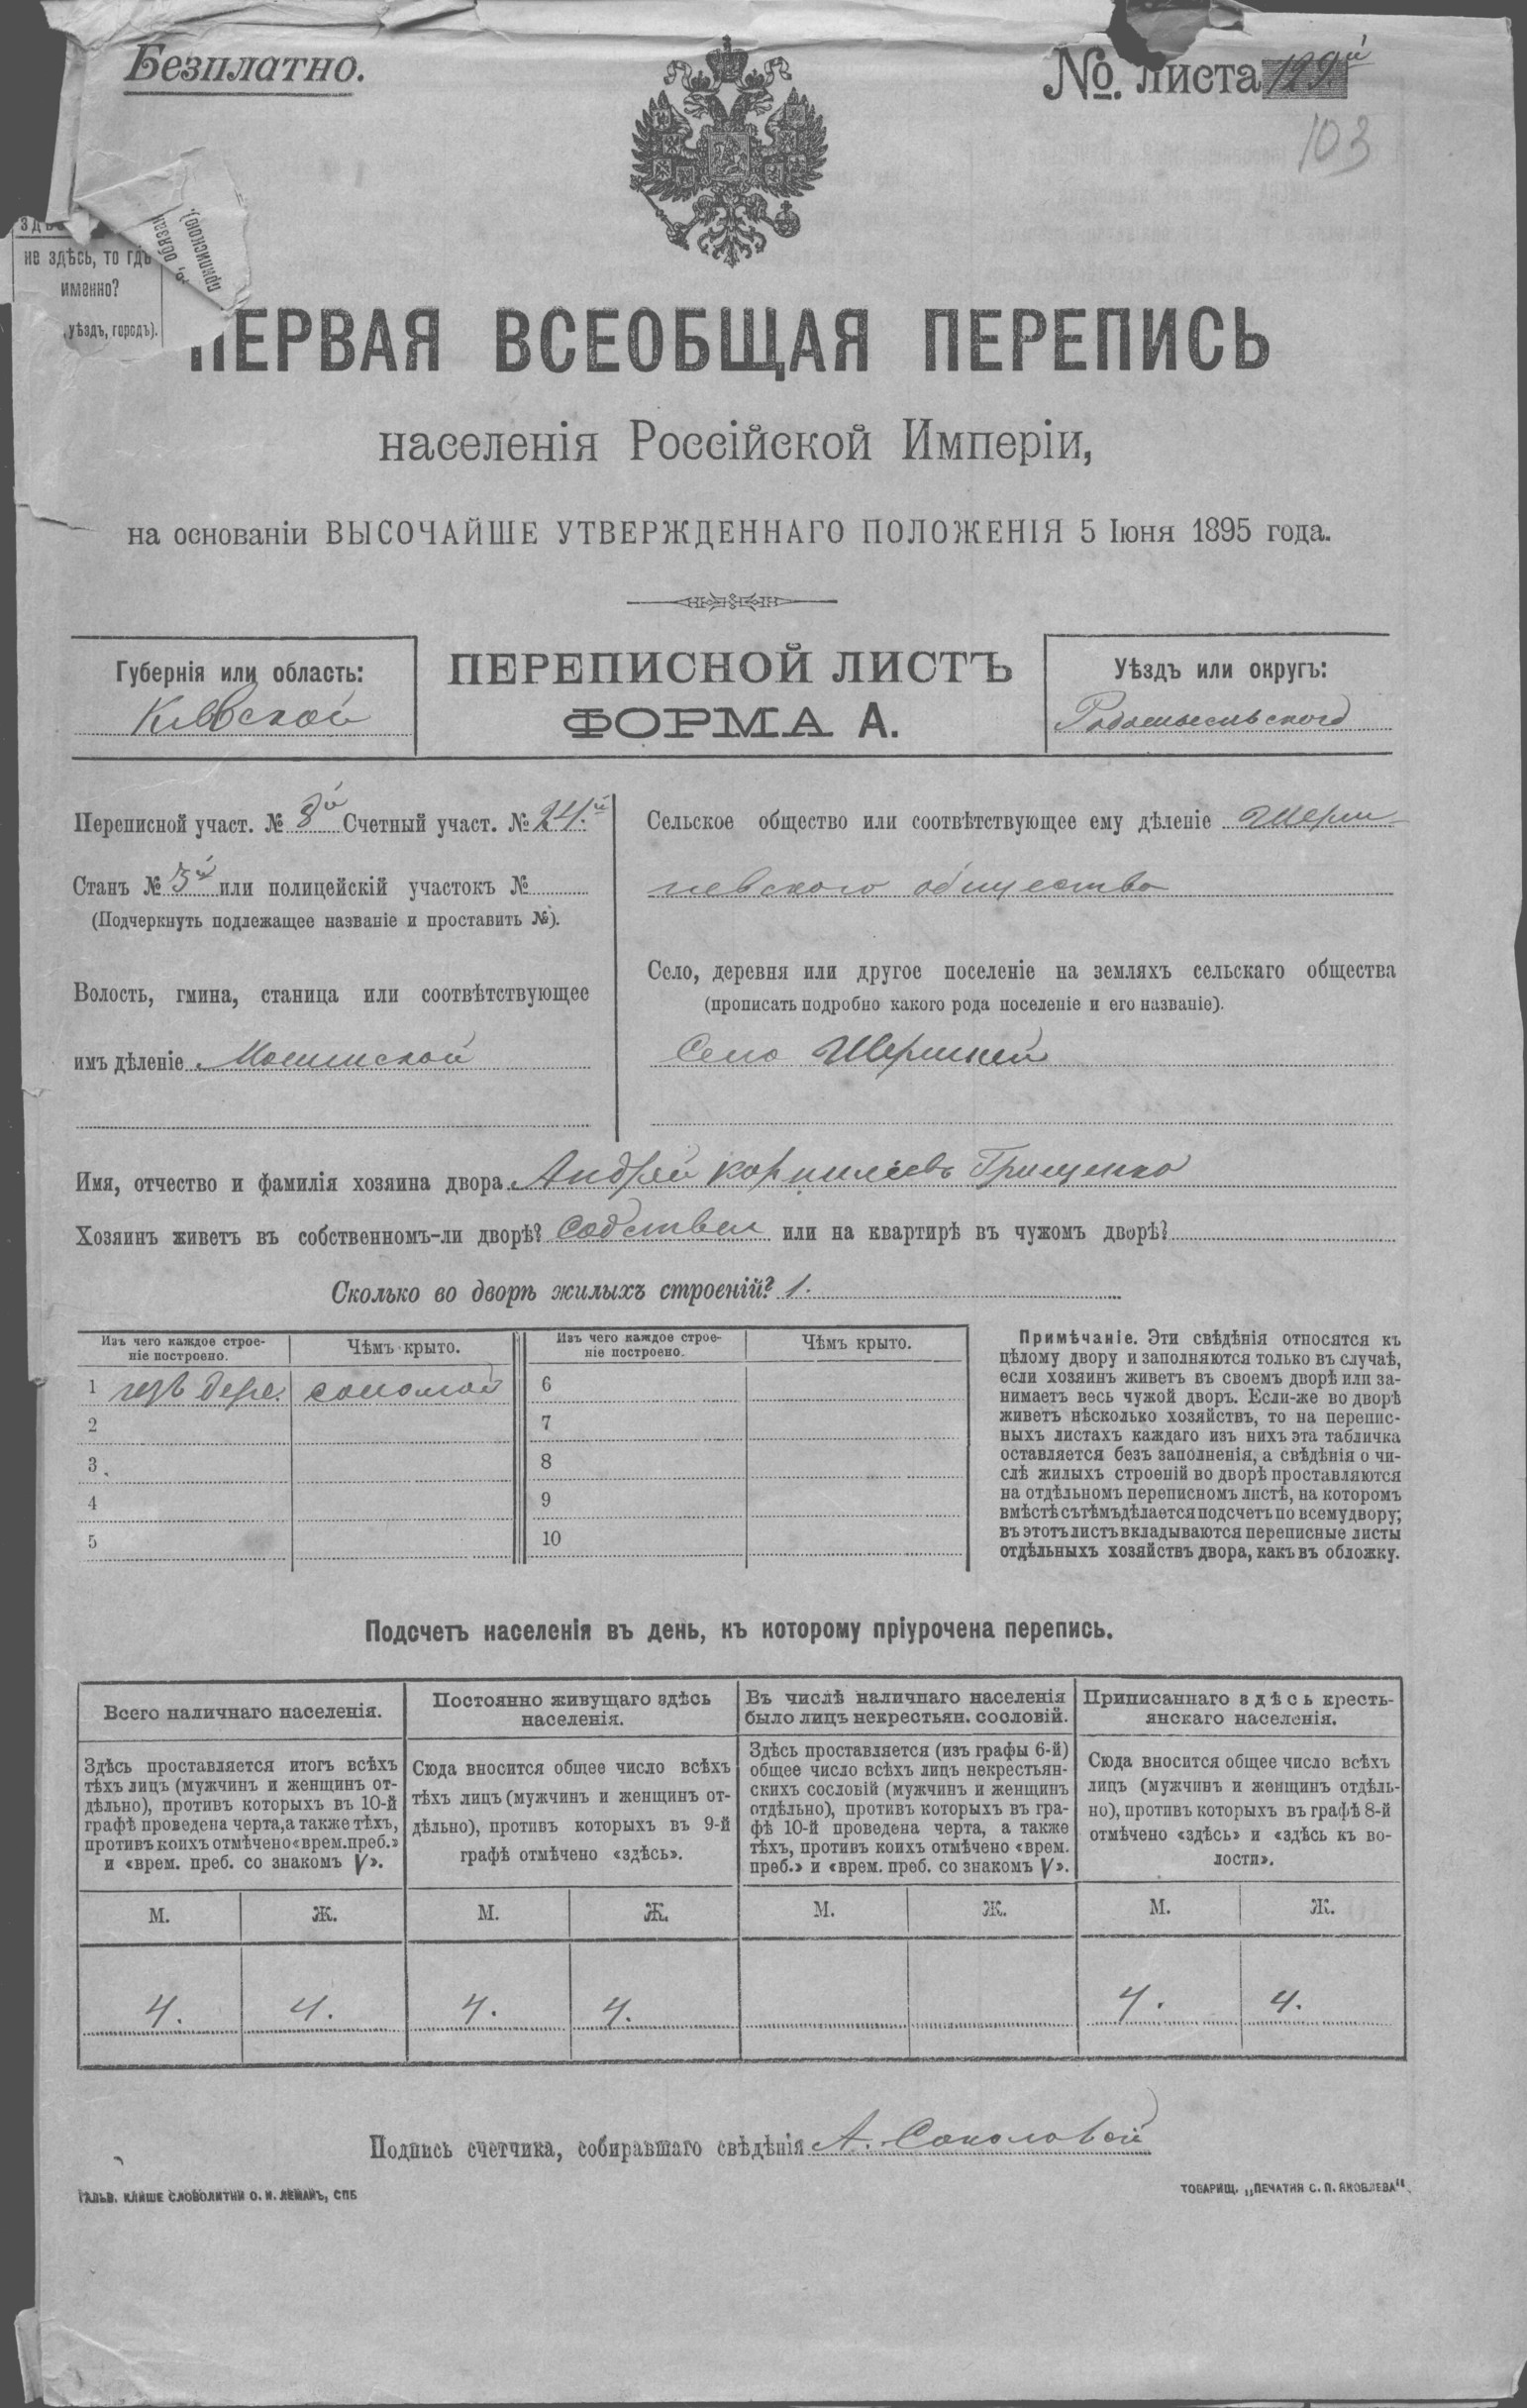 Безплатно.
№. листа 129й
103
не здѣсь, то гдѣ
именно?
уѣздъ, городъ).
обязан
припискою).
ПЕРВАЯ ВСЕОБЩАЯ ПЕРЕПИСЬ
населенія Россійской Имперіи,
на основаніи ВЫСОЧАЙШЕ УТВЕРЖДЕННАГО ПОЛОЖЕНІЯ 5 Іюня 1895 года.
Губернія или область:
Кіевской
ПЕРЕПИСНОЙ ЛИСТЪ
ФОРМА А.
Уѣздъ или округъ:
Радомысльского
Переписной участ. № 8й Счетный участ. № 24.й
Станъ № 5й или полицейскій участокъ №
(Подчеркнуть подлежащее названіе и проставить №).
Волость, гмина, станица или соотвѣтствующее
имъ дѣленіе
Сельское общество или соотвѣтствующее ему дѣленіе Шерш
невского общества
Село, деревня или другое поселеніе на земляхъ сельскаго общества
(прописать подробно какого рода поселеніе и его названіе).
Село Шершней
Имя, отчество и фамилія хозяина двора Андрей Корниліевъ Грищенко
Хозяинъ живетъ въ собственномъ-ли дворѣ? Собствен или на квартирѣ въ чужомъ дворѣ?
Сколько во дворѣ жилыхъ строеній? 1.
Изъ чего каждое строе-
ніе построено.
Чѣмъ крыто.
Изъ чего каждое строе-
ніе построено.
Чѣмъ крыто.
1 изъ дере. соломой 6
2 7
3 8
4 9
5 10
Примѣчаніе. Эти свѣдѣнія относятся къ
цѣлому двору и заполняются только въ случаѣ,
если хозяинъ живетъ въ своемъ дворѣ или за-
нимаетъ весь чужой дворъ. Если-же во дворѣ
живетъ нѣсколько хозяйствъ, то на перепис-
ныхъ листахъ каждаго изъ нихъ эта табличка
оставляется безъ заполненія, а свѣдѣнія о чи-
слѣ жилыхъ строеній во дворѣ проставляются
на отдѣльномъ переписномъ листѣ, на которомъ
вмѣстѣ съ тѣмъ дѣлается подсчетъ по всему двору;
въ этотъ листъ вкладываются переписные листы
отдѣльныхъ хозяйствъ двора, какъ въ обложку.
Подсчетъ населенія въ день, къ которому пріурочена перепись.
Всего наличнаго населенія.
Здѣсь проставляется итогъ всѣхъ
тѣхъ лицъ (мужчинъ и женщинъ от-
дѣльно), противъ которыхъ въ 10-й
графѣ проведена черта, а также тѣхъ,
противъ коихъ отмѣчено «врем. преб.»
и «врем. преб. со знакомъ V».
Постоянно живущаго здѣсь
населенія.
Сюда вносится общее число всѣхъ
тѣхъ лицъ (мужчинъ и женщинъ от-
дѣльно), противъ которыхъ въ 9-й
графѣ отмѣчено «здѣсь».
Въ числѣ наличнаго населенія
было лицъ некрестьян. сословій.
Здѣсь проставляется (изъ графы 6-й)
общее число всѣхъ лицъ некрестьян-
скихъ сословій (мужчинъ и женщинъ
отдѣльно), противъ которыхъ въ гра-
фѣ 10-й проведена черта, а также
тѣхъ, противъ коихъ отмѣчено «врем.
преб.» и «врем. преб. со знакомъ V».
Приписаннаго здѣсь кресть-
янскаго населенія.
Сюда вносится общее число всѣхъ
лицъ (мужчинъ и женщинъ отдѣль-
но), противъ которыхъ въ графѣ 8-й
отмѣчено «здѣсь» и «здѣсь къ во-
лости».
М. Ж. М. Ж. М. Ж. М. Ж.
4. 4. 4. 4. 4. 4.
Подпись счетчика, собиравшаго свѣдѣнія А. Соколовой
ГАЛЬВ. КЛИШЕ СЛОВОЛИТНИ О. И. ЛЕМАНЪ, СПБ
ТОВАРИЩ. „ПЕЧАТНЯ С. П. ЯКОВЛЕВА".